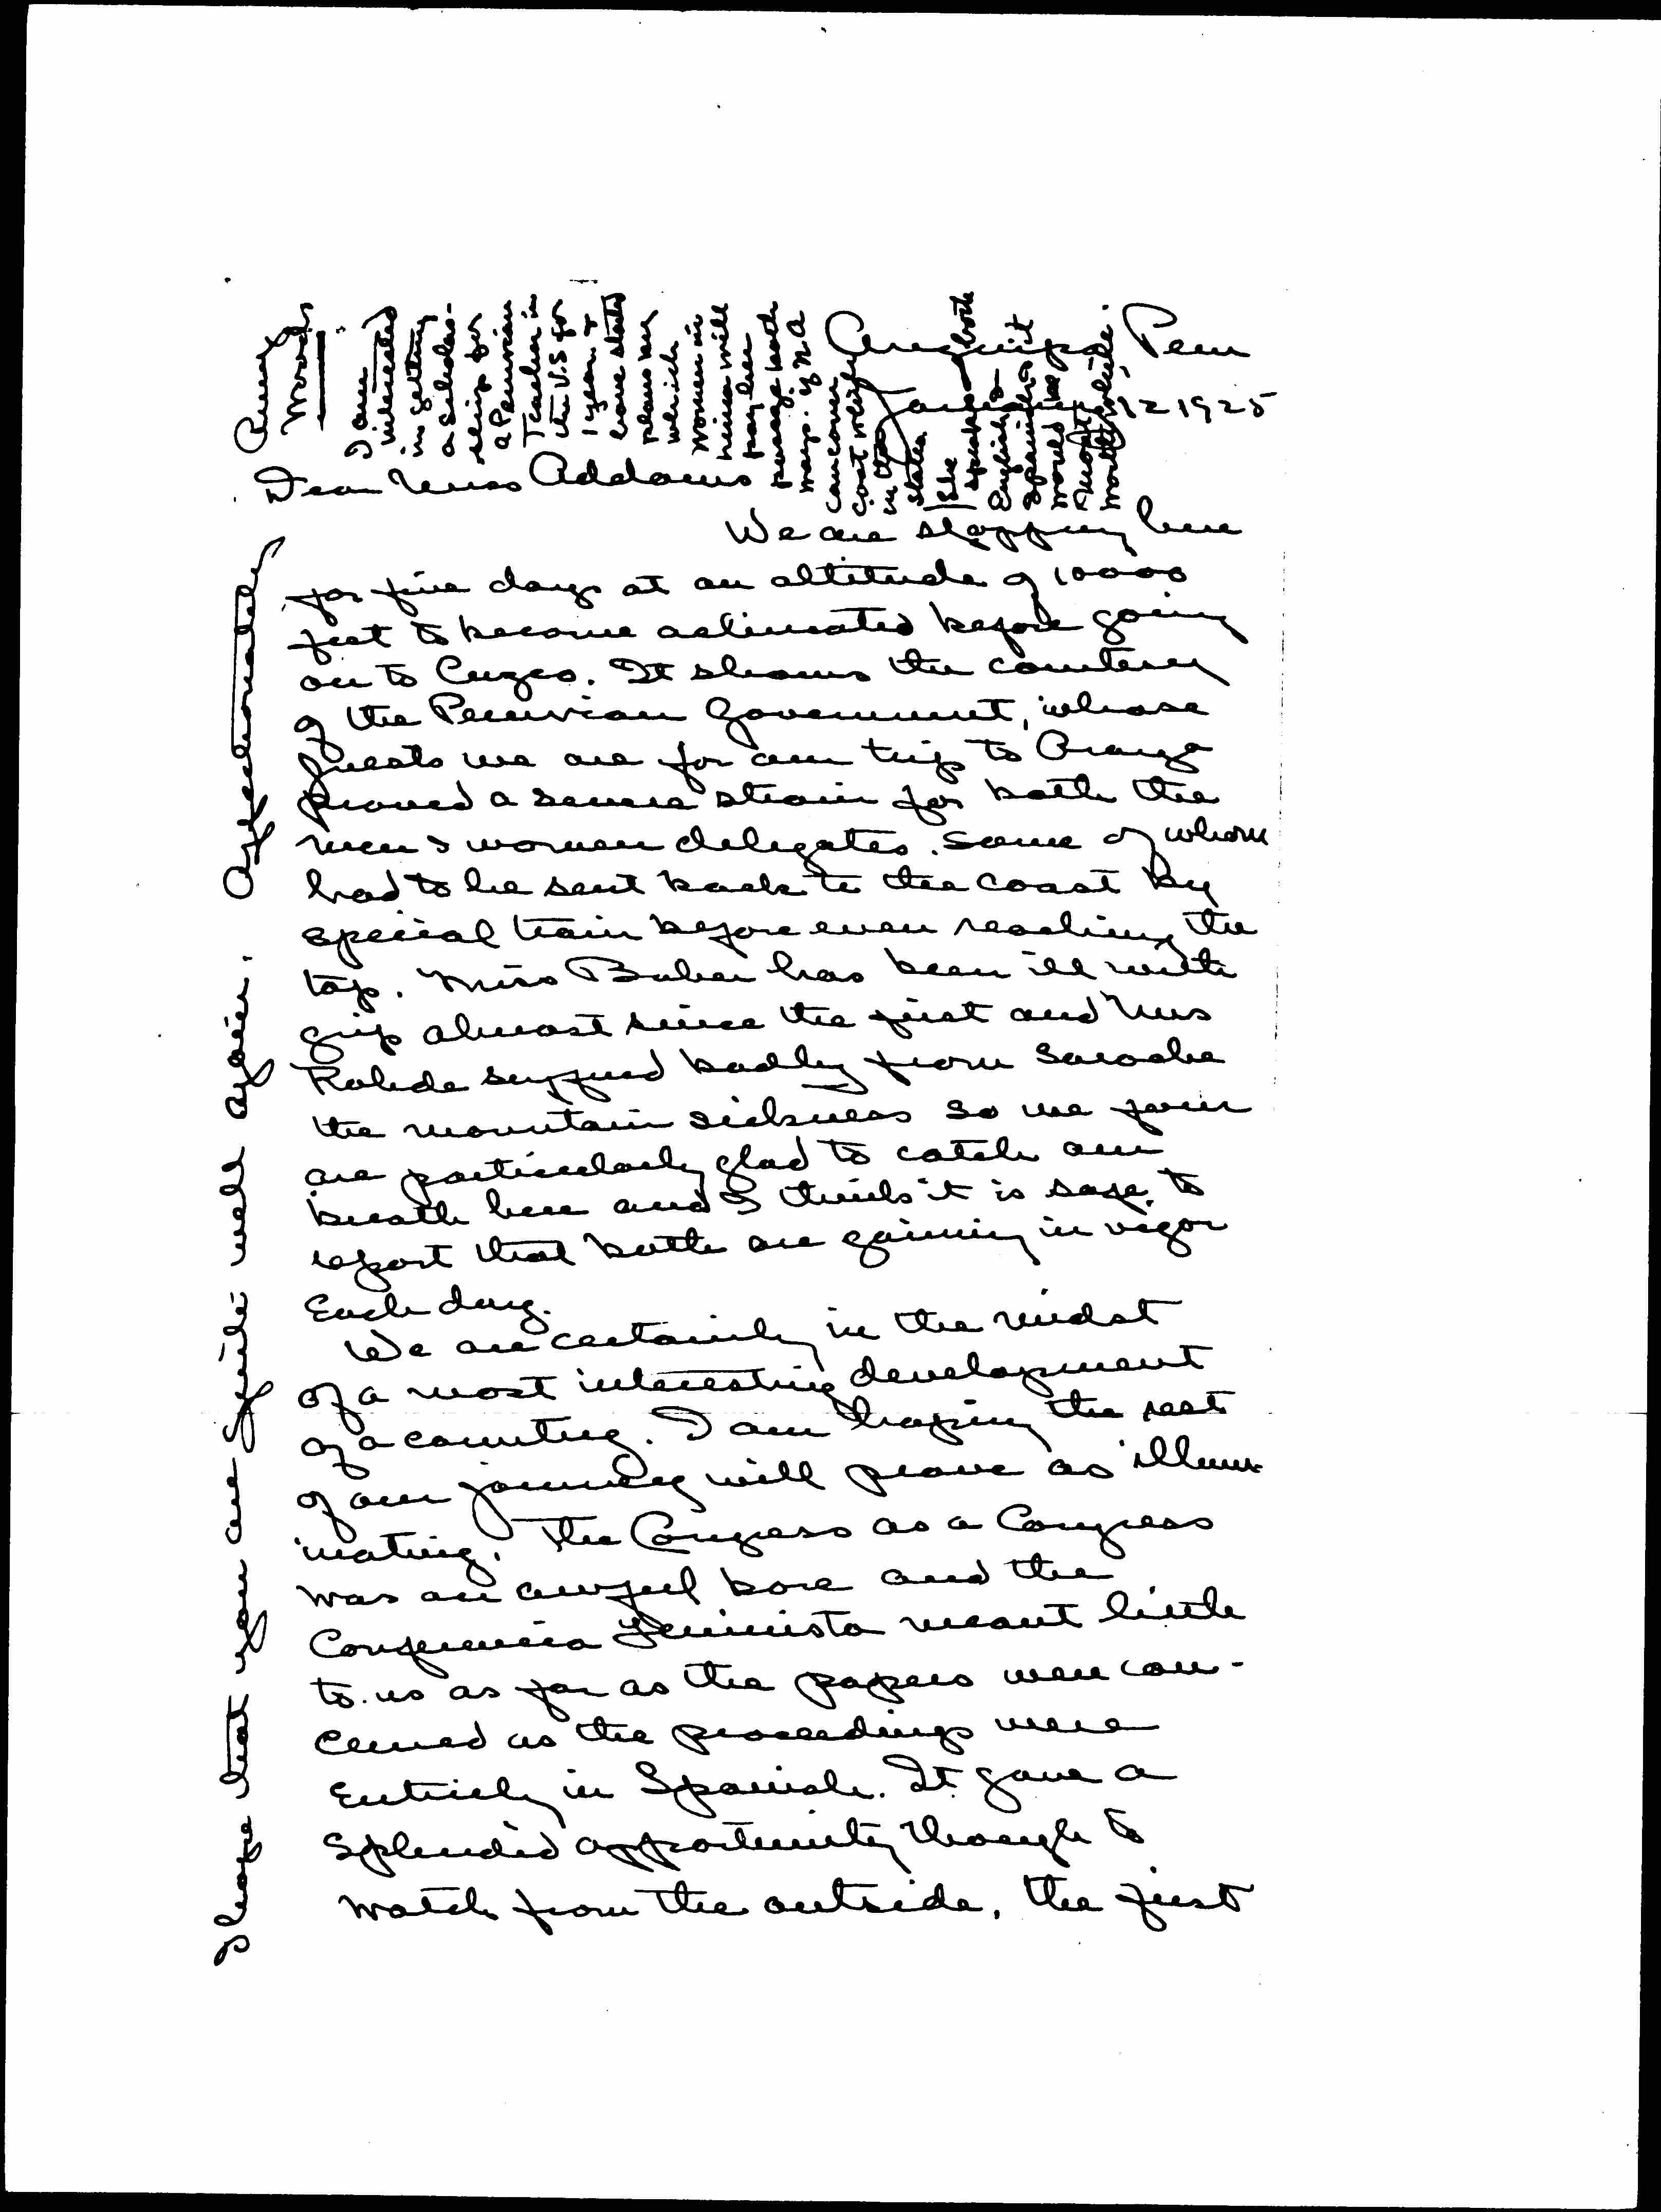 Arequipa Peru
January 12 1925
Dear Miss Addams
We are stopping here
for five days at an altitude of 10000
feet to become aclimated before going
on to Cuzco. It shows the courtesy
of the Peruvian Government, whose
guests we are for our trip to
proved a severe strain for both the
men & women delegates. some of whom
had to be sent back to the coast by
special train before even reaching the
top. Miss Baber has been ill with
grip almost since the first and Mrs
Rohde suffered badly from Saroche
the mountain sickness so we four
are particularly glad to catch our
breath here and I think it is safe to
report that both are gaining in vigor
Each day.
We are certainly in the midst
of a most interesting development
of a country. I am hoping the rest
of our journey will prove as illum-
inating. The Congress as a Congress
was an awful bore and the
Conferencia Feminista meant little
to us as far as the papers were con-
cerned as the proceedings were
Entirely in Spanish. It gave a
splendid opportunity though to
watch from the outside, the first
I hope that you are quite well again. Affectionately
Amy
Woods
I am
interested
in getting
a Scholar-
ship for
a Peruvian
Teacher in
the U.S for
1 year &
have started
plans by
which
Women in
Lima will
pay her
passage both
ways. if N A
can cover
cost while
in the
States
She
speaks both
English &
Spanish & it
would be
most
worth while.